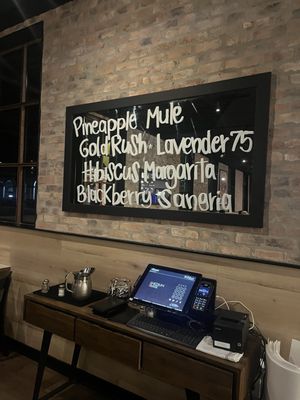 Pineapple Mule
Gold Rush • Lavender 75
Hibiscus Margarita
Blackberry Sangria